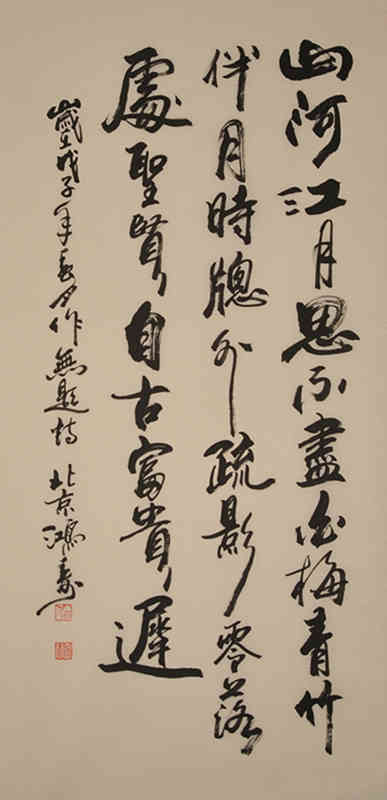 山河江月思不盡白梅青竹
伴月時牕外疏影零落
處聖賢自古富貴遲
歲戊子年春作無題詩 北京鴻壽